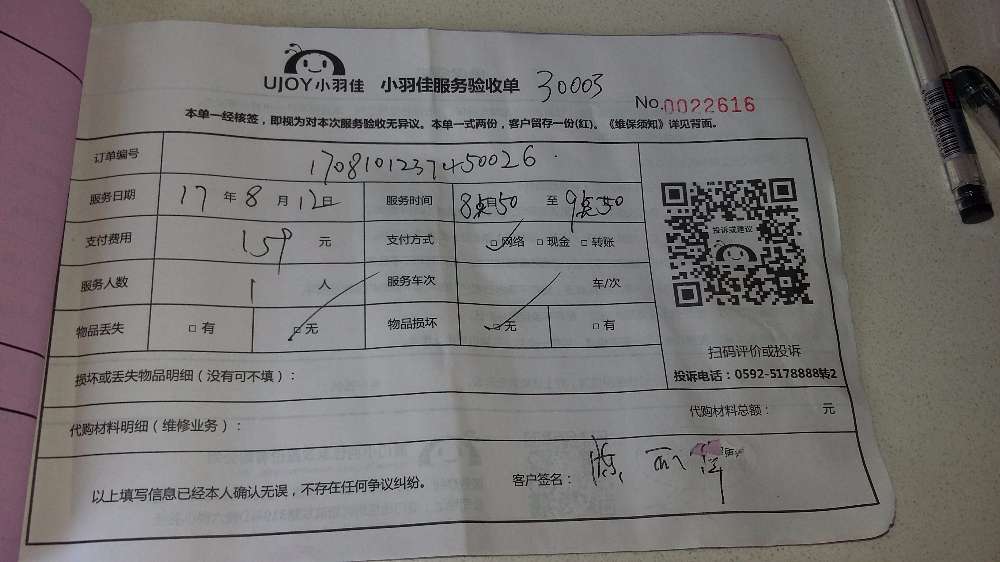 UJOY小羽佳 小羽佳服务验收单 30003
No.0022616
本单一经核签，即视为对本次服务验收无异议。本单一式两份，客户留存一份(红)。《维保须知》详见背面。
订单编号 1708101237450026
服务日期 17年8月12日 服务时间 8点50至9点50
支付费用 159元 支付方式 □网络 □现金 □转账
投诉或建议
服务人数 1人 服务车次 车/次
物品丢失 □有 □无 物品损坏 □无 □有
扫码评价或投诉
损坏或丢失物品明细（没有可不填）：
投诉电话：0592-5178888转2
代购材料明细（维修业务）：
代购材料总额： 元
以上填写信息已经本人确认无误，不存在任何争议纠纷。 客户签名：